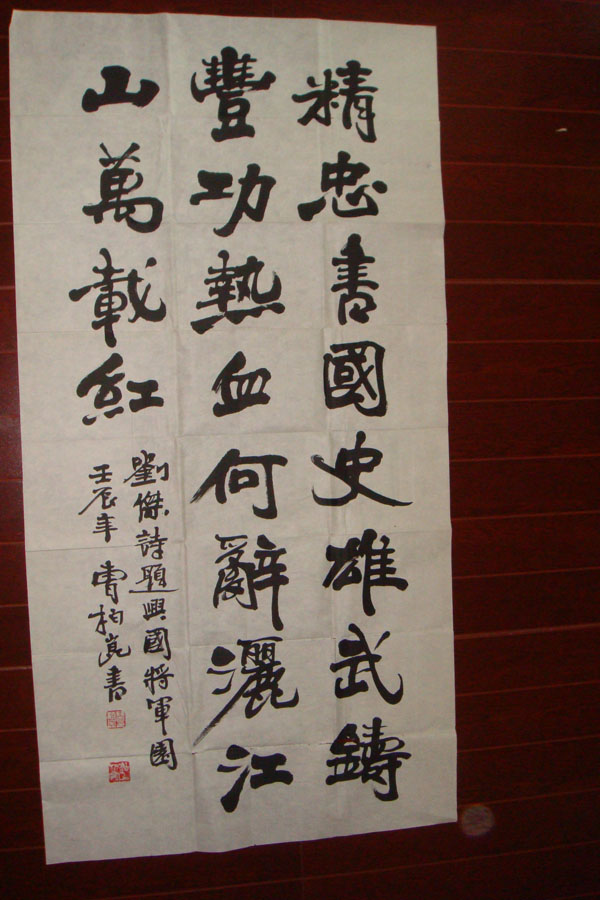 精忠書國史雄武鑄
豐功熱血何辭灑江
山萬載紅
劉傑詩題興國將軍園
壬辰年 曹柏崑書